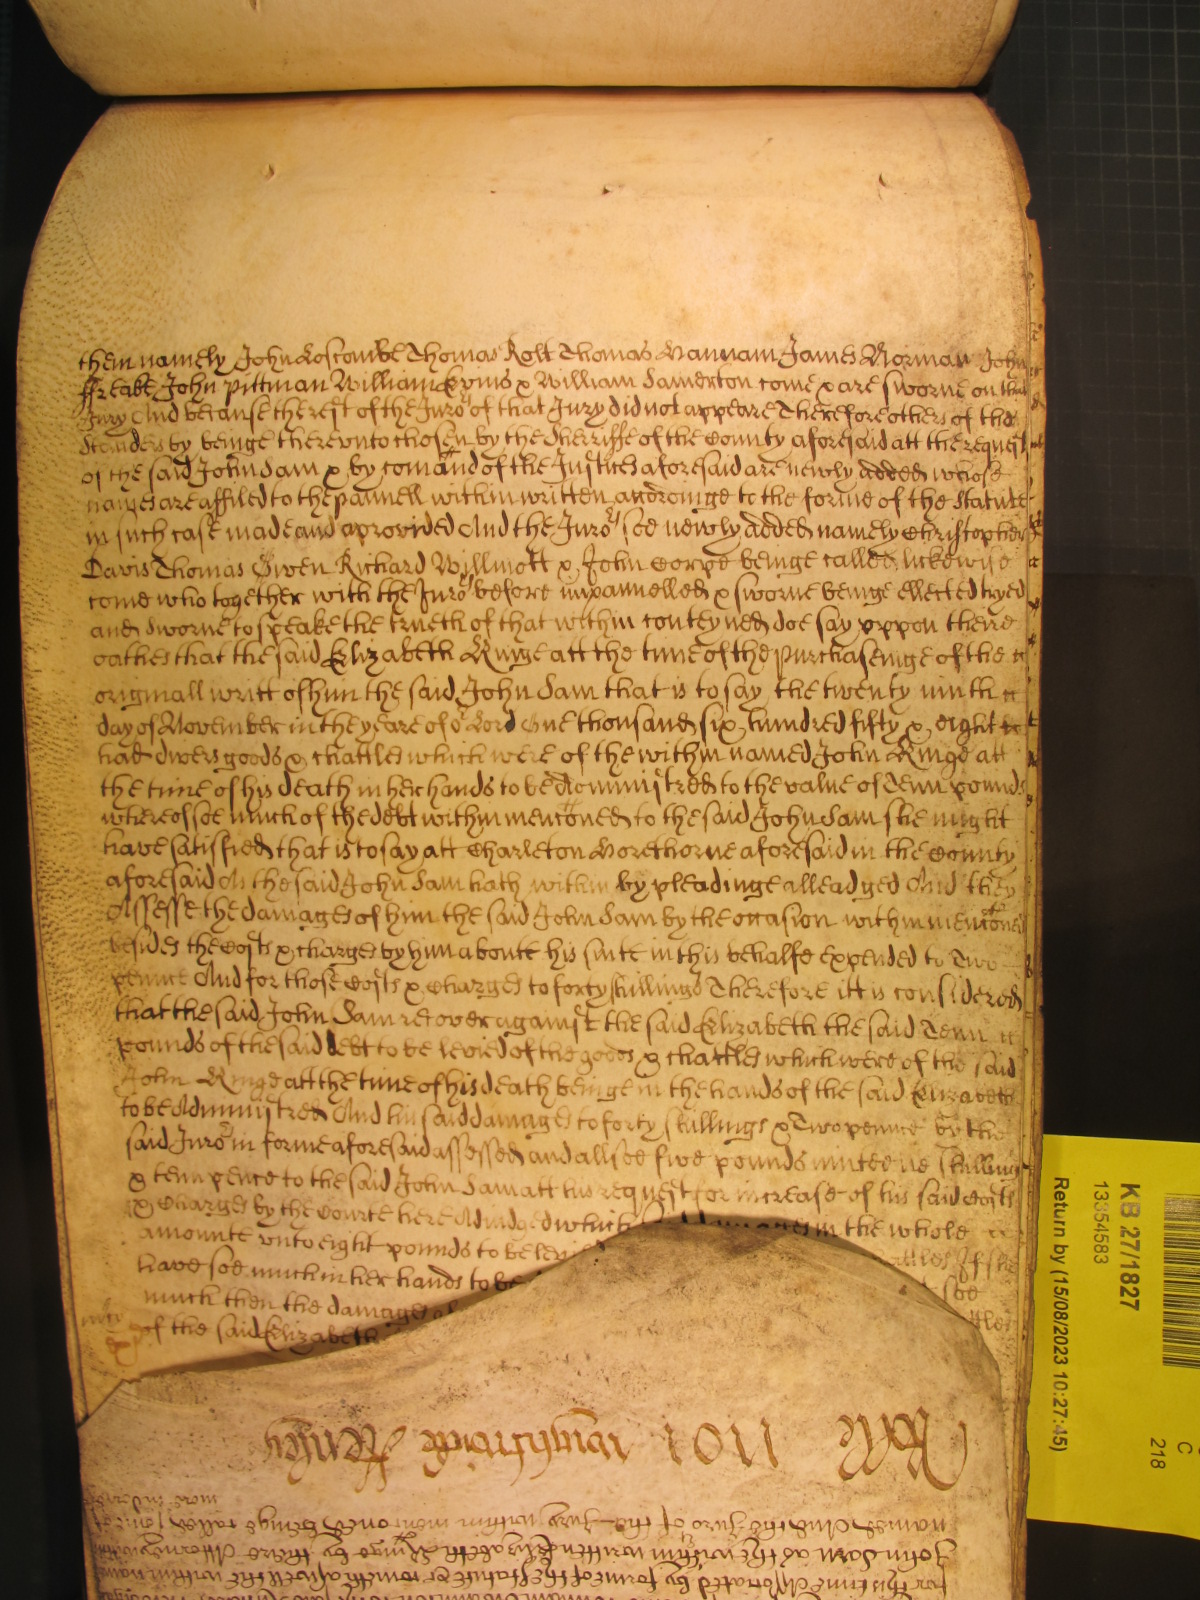 them namely John Loscombe Thomas Rolt Thomas Hannam James Norman John
ffreake John pittman William Hyms & William Samerton come & are sworne on that
Jury And because the rest of the Juro:rs of that Jury did not appeare Therefore others of the
Standers by beinge thereunto chosen by the Sherriffe of the County aforesaid att the request
of the said John Sam & by comand of the Justices aforesaid are newly added whose
names are affiled to the pannell within written accordinge to the forme of the Statute
in such case made and aprovided And the Juro:rs soe newly added namely Christopher
Davis Thomas Gwen Richard Willmott & John Corpe beinge called lickewise
come who together with the Juro:rs before impannelled & sworne beinge ellected tryed
and Sworne to speake the trueth of that within conteyned doe say uppon theire
oathes that the said Elizabeth Ringe att the time of the purchaseinge of the
originall writt of him the said John Sam that is to say the twenty ninth
day of November in the yeare of o:r Lord One thousand six hundred fifty & eight
had divers goods & chattles which were of the within named John Ringe att
the time of his death in her hands to be Administred to the value of Tenn pounds
whereof soe much of the debt within menconed to the said John Sam she might
have satisfied that is to say att Charleton Morethorne aforesaid in the County
aforesaid As the said John Sam hath within by pleadinge alleadged And they
Assesse the damages of him the said John Sam by the occasion within menconed
besides the Costs & charges by him about his suite in this behalfe expended to Two
pence And for those Costs & Charges to forty shillings Therefore itt is considered
that the said John Sam recover against the said Elizabeth the said Tenn
pounds of the said debt to be levied of the goods & chattles which were of the said
John Ringe att the time of his death beinge in the hands of the said Elizabeth
to be Administred And his said damages to forty shillings & Two pence by the
said Juro:rs in forme aforesaid assessed and allsoe five pounds nineteene shillings
& tenn pence to the said John Sam att his request for increase of his said Costs
& Charges by the Courte here Adiudged which damages in the whole
amounte unto eight pounds to be levied chattles If she
have soe much in her hands to be soe
much then the damages
of the said Elizabeth
Rolle 1101
named And the Juro:rs of the Jury within mencioned beinge called some of
John Sam as the within written Elizabeth Ringe by there Attorneys within
KB 27/1827
13354583
Return by (15/08/2023 10:27:45)
C
218